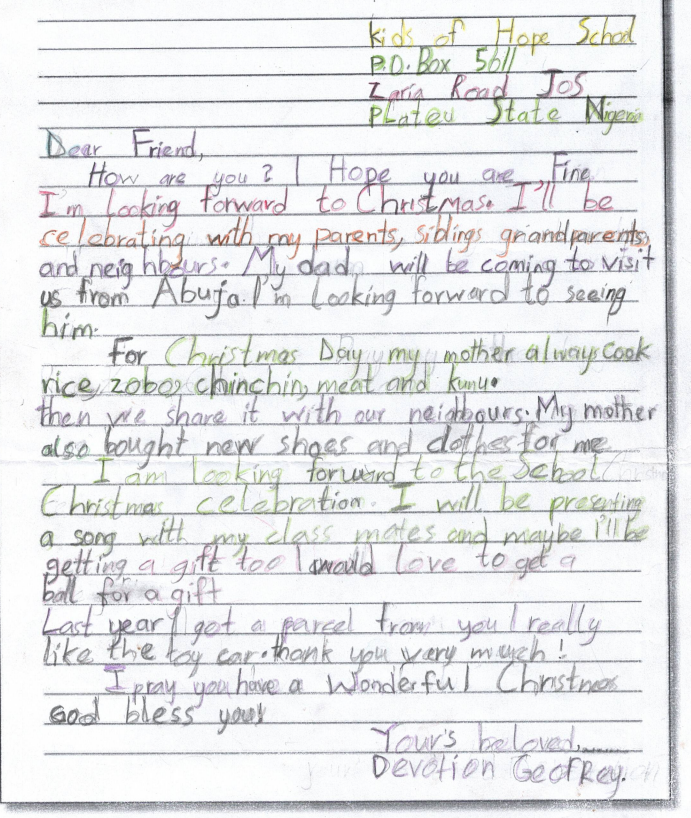 kids of Hope School
P.O. Box 5611
Zaria Road Jos
PLateu State Nigeria
Dear Friend,
How are you? I Hope you are Fine
I'm looking forward to Christmas. I'll be
celebrating with my parents, siblings grandparents,
and neighbours. My dad will be coming to visit
us from Abuja. I'm looking forward to seeing
him.
For Christmas Day my mother always cook
rice, zobo, chinchin, meat and kunu.
then we share it with our neighbours. My mother
also bought new shoes and clothes for me
I am looking forward to the School
Christmas celebration. I will be presenting
a song with my class mates and maybe i'll be
getting a gift too I would love to get a
ball for a gift
Last year I got a parcel from you I really
like the toy car. thank you very much!
I pray you have a Wonderful Christmas
God bless you!
Your's beloved,
Devotion Geofrey.